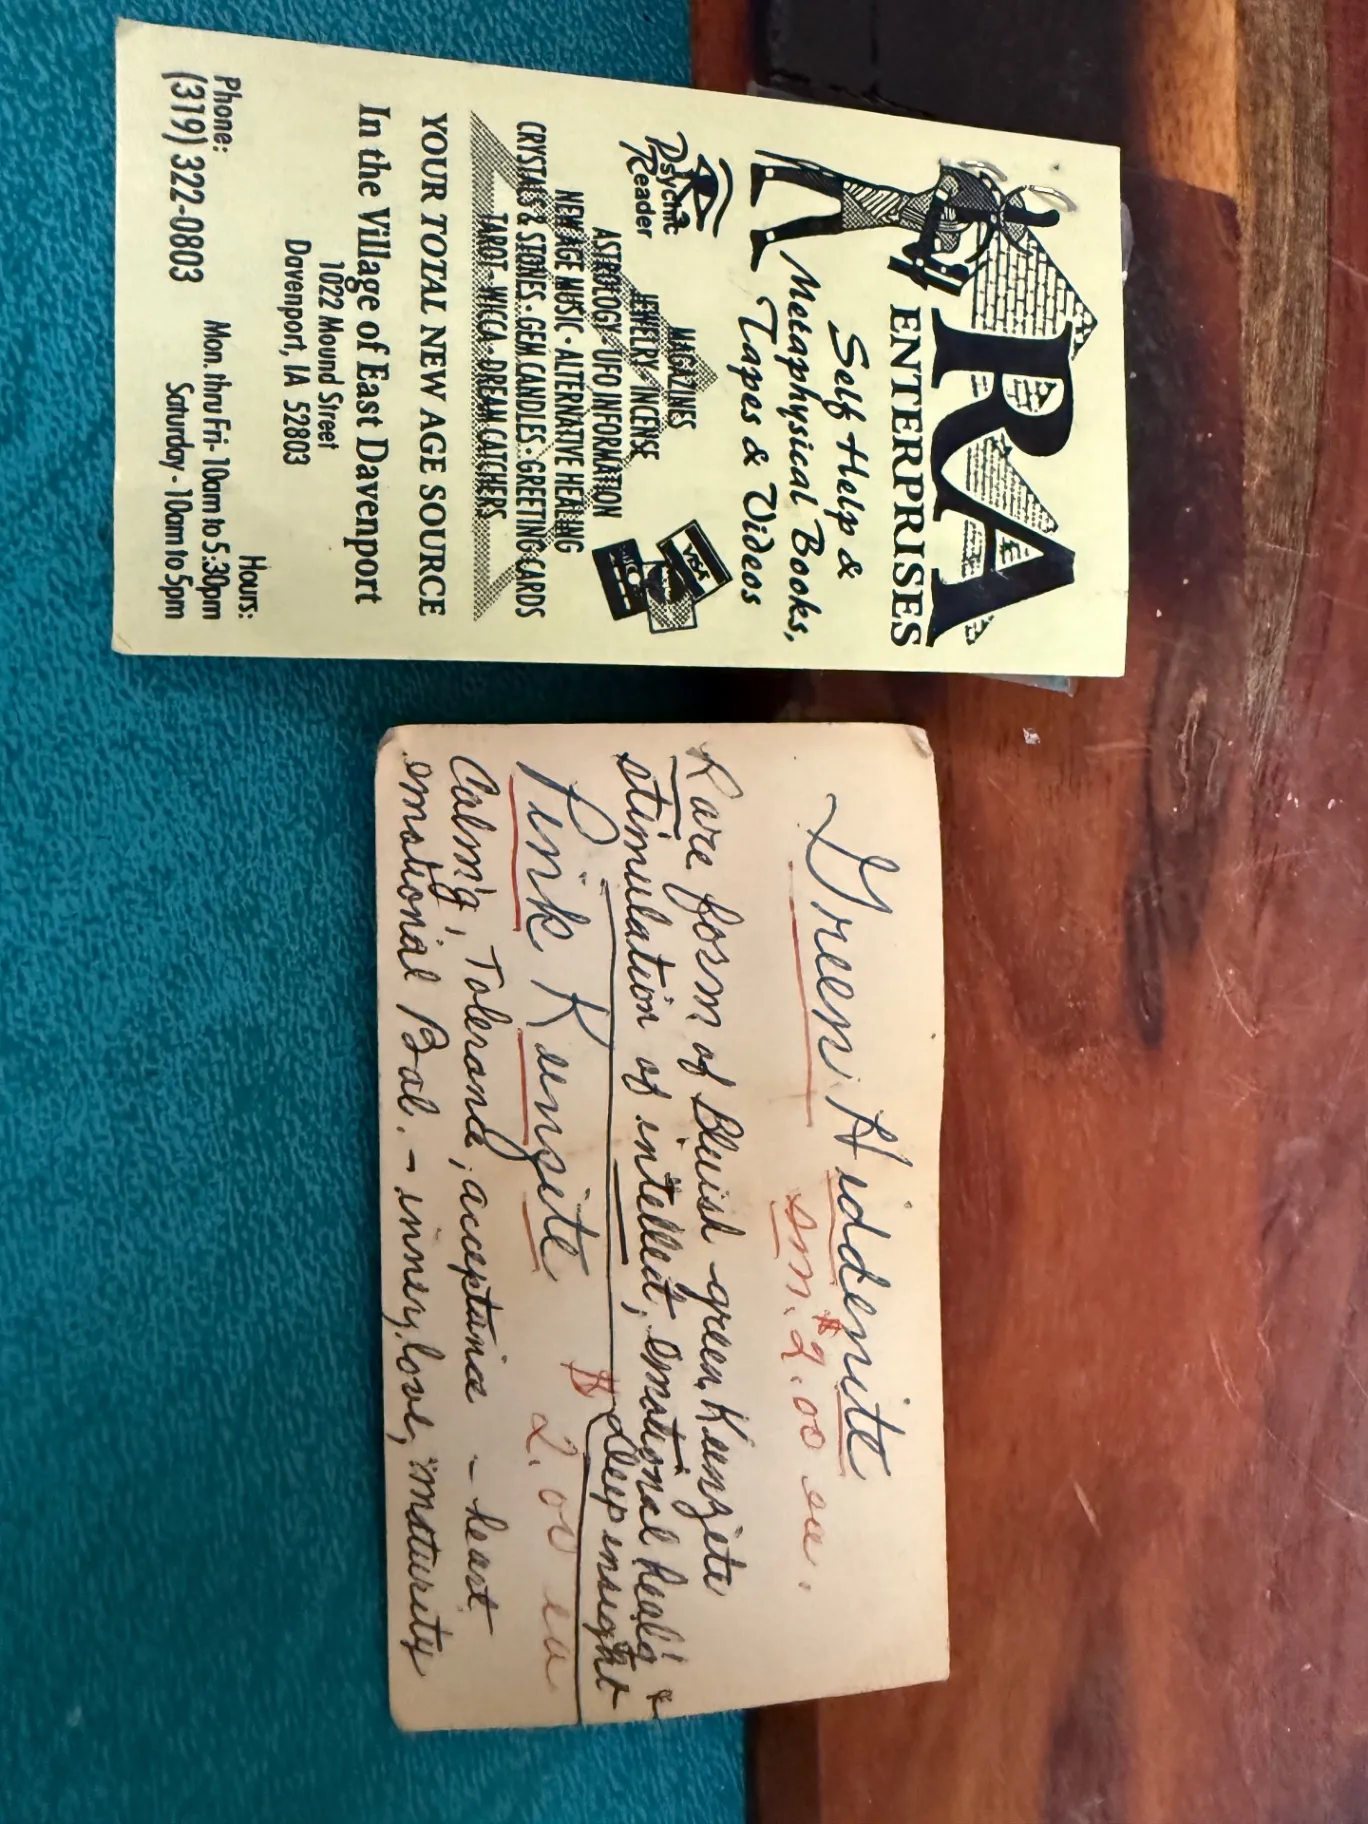 RA
ENTERPRISES
Self Help &
Metaphysical Books,
Tapes & Videos
Psychic
Reader
VISA
MAGAZINES
JEWELRY · INCENSE
ASTROLOGY · UFO INFORMATION
NEW AGE MUSIC · ALTERNATIVE HEALING
CRYSTALS & STONES · GEM CANDLES · GREETING CARDS
TAROT · WICCA · DREAM CATCHERS
YOUR TOTAL NEW AGE SOURCE
In the Village of East Davenport
1022 Mound Street
Davenport, IA 52803
Phone:
(319) 322-0803
Hours:
Mon. thru Fri - 10am to 5:30pm
Saturday - 10am to 5pm
Green Hiddenite
sm. $2.00 ea.
Rare form of Bluish green Kunzite
stimulation of intellect, emotional heal'g &
deep insight
Pink Kunzite $2.00 ea
Calm'g, Tolerance, acceptance - heart
emotional Bal. - inner, love, maturity